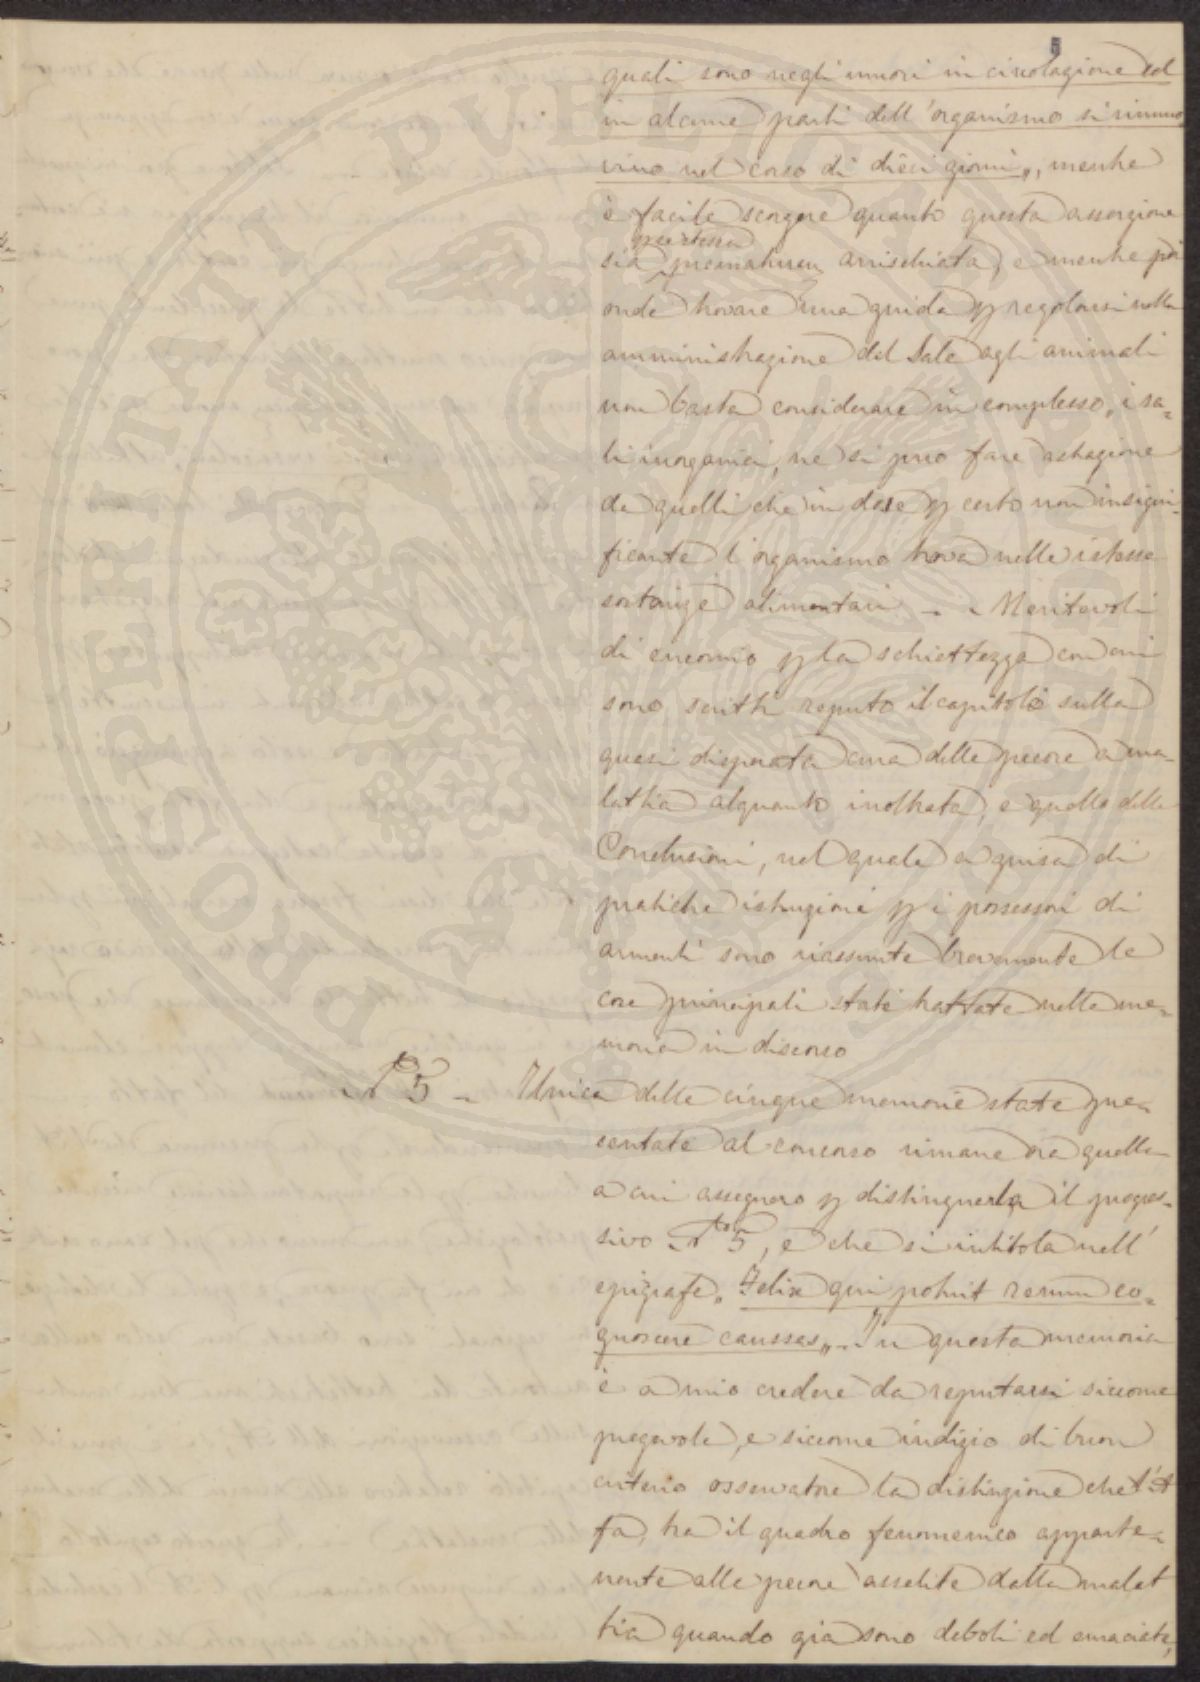 5
quali sono negli umori in circolazione ed
in alcune parti dell'organismo si rinnuo
vino nel corso di dieci giorni„, mentre
è facile scorgere quanto questa asserzione
sia per lo meno arrischiata, e mentre poi
onde trovare una guida p regolarsi nella
amministrazione del Sale agli animali
non basta considerare in complesso, i sa=
li inorganici, ne si può fare astrazione
da quelli che in dose p certo non insigni=
ficante l'organismo trova nelle istesse
sostanze alimentari - - Meritevoli
di encomio p la schiettezza con cui
sono scritti reputo il capitolo sulla
quasi disperata cura delle pecore a ma=
lattia alquanto inoltrata, e quello delle
Conclusioni, nel quale a guisa di
pratiche istruzioni p i possessori di
armenti sono riassunte brevemente le
cose principali state trattate nella me=
moria in discorso
N° 5 - Unica delle cinque memorie state pre=
sentate al concorso rimane ora quella
a cui assegnero p distinguerla il progres=
sivo N° 5, e che si intitola nell'
epigrafe „Felix qui potuit rerum co=
gnoscere caussas„-. In questa memoria
è a mio credere da reputarsi siccome
pregevole, e siccome indizio di buon
criterio osservatore la distinzione che l'A
fa, tra il quadro fenomenico apparte=
nente alle pecore assalite dalla malat
tia quando già sono deboli ed emaciate,
PROSPERITATI PUBLICAE